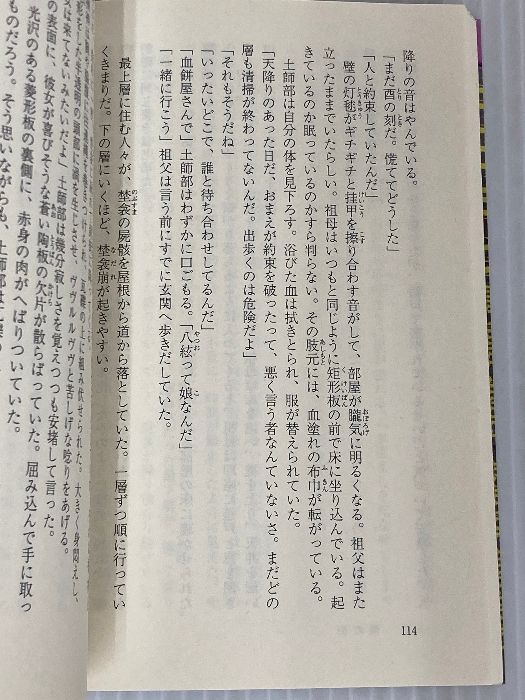 降りの音はやんでいる。
「まだ酉の刻だ。慌ててどうした」
「人と約束していたんだ」
壁の灯毬がギチギチと挂甲を擦り合わす音がして、部屋が朧気に明るくなる。祖父はまた
立ったままでいたらしい。祖母はいつもと同じように矩形板の前で床に坐り込んでいる。起
きているのか眠っているのかすら判らない。その肢元には、血塗れの布巾が転がっている。
土師部は自分の体を見下ろす。浴びた血は拭きとられ、服が替えられていた。
「天降りのあった日だ、おまえが約束を破ったって、悪く言う者なんていないさ。まだどの
層も清掃が終わってないんだ。出歩くのは危険だよ」
「それもそうだね」
「いったいどこで、誰と待ち合わせしてるんだ」
「血餅屋さんで」土師部はわずかに口ごもる。「八絃って娘なんだ」
「一緒に行こう」祖父は言う前にすでに玄関へ歩きだしていた。
最上層に住む人々が、埜衾の屍骸を屋根から道から落としていた。一層ずつ順に行ってい
くきまりだ。下の層にいくほど、埜衾崩が起きやすい。
114
組み伏せられた。大きく身悶えし、
半透明の頭部に渦を生じさせ、ヴヴルルヴヴと苦しげな唸りをあげる。
は来てないみたいだよ」土師部は幾分寂しさを覚えつつも安堵して言った。
の表面に、彼女が喜びそうな蒼い陶板の欠片が散らばっていた。屈み込んで手に取っ
光沢のある菱形板の裏側に、赤身の肉がへばりついていた。
ものだろう。そう思いながらも、土師部は